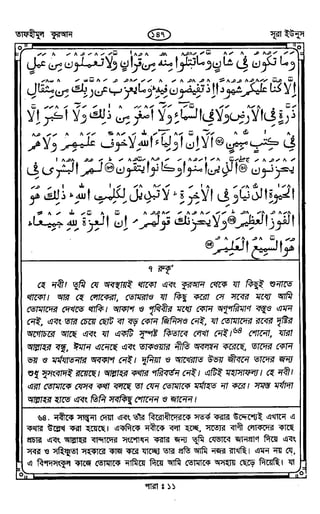 তাফহীমুল কুরআন ১৪৭ সূরা ইউনুস
وَمَا تَكُونُ فِي شَأْنٍ وَمَا تَتْلُوا مِنْهُ مِنْ قُرْآنٍ وَلَا تَعْمَلُونَ مِنْ عَمَلٍ
إِلَّا كُنَّا عَلَيْكُمْ شُهُودًا إِذْ تُفِيضُونَ فِيهِ وَمَا يَعْزُبُ عَنْ رَبِّكَ مِنْ مِثْقَالِ
ذَرَّةٍ فِي الْأَرْضِ وَلَا فِي السَّمَاءِ وَلَا أَصْغَرَ مِنْ ذَلِكَ وَلَا أَكْبَرَ إِلَّا
فِي كِتَابٍ مُبِينٍ ۝ أَلَا إِنَّ أَوْلِيَاءَ اللَّهِ لَا خَوْفٌ عَلَيْهِمْ وَلَا هُمْ
يَحْزَنُونَ ۝ الَّذِينَ آمَنُوا وَكَانُوا يَتَّقُونَ ۝ لَهُمُ الْبُشْرَى فِي
الْحَيَوةِ الدُّنْيَا وَفِي الْآخِرَةِ لَا تَبْدِيلَ لِكَلِمَتِ اللَّهِ ذَلِكَ هُوَ
الْفَوْزُ الْعَظِيمُ ۝ وَلَا يَحْزُنْكَ قَوْلُهُمْ إِنَّ الْعِزَّةَ لِلَّهِ جَمِيعًا
هُوَ السَّمِيعُ الْعَلِيمُ ۝
৭ রুকূ'
হে নবী! তুমি যে অবস্থায়ই থাকো এবং কুরআন থেকে যা কিছুই শুনাতে
থাকো। আর হে লোকেরা, তোমরাও যা কিছু করো সে সবের মধ্যে আমি
তোমাদের দেখতে থাকি। আকাশ ও পৃথিবীর মধ্যে কোন অণুপরিমাণ বস্তুও এমন
নেই, এবং তার চেয়ে ছোট বা বড় কোন জিনিসও নেই, যা তোমাদের রবের দৃষ্টির
অগোচরে আছে এবং যা একটি সুস্পষ্ট কিতাবে লেখা নেই।৬৪ শোনো, যারা
আল্লাহর বন্ধু, ঈমান এনেছে এবং তাকওয়ার নীতি অবলম্বন করেছে, তাদের কোন
ভয় ও মর্মযাতনার অবকাশ নেই। দুনিয়া ও আখেরাত উভয় জীবনে তাদের জন্য
শুধু সুসংবাদই রয়েছে। আল্লাহর কথার পরিবর্তন নেই। এটিই মহাসাফল্য। হে নবী!
এরা তোমাকে যেসব কথা বলছে তা যেন তোমাকে মর্মাহত না করে। সমস্ত মর্যাদা
আল্লাহর হাতে এবং তিনি সবকিছু শোনেন ও জানেন।
৬৪. নবীকে সান্ত্বনা দেয়া এবং তাঁর বিরোধীদেরকে সতর্ক করার উদ্দেশ্যেই এখানে এ
কথার উল্লেখ করা হয়েছে। একদিকে নবীকে বলা হচ্ছে, সত্যের বাণী লোকদের কাছে
প্রচার এবং আল্লাহর বান্দাদের সংশোধন করার জন্য তুমি যেভাবে জানপ্রাণ দিয়ে এবং
সবর ও সহিষ্ণুতা সহকারে কাজ করে যাচ্ছো তার প্রতি আমি নজর রাখছি। এমন নয় যে,
এ বিপদসংকুল কাজে তোমাকে নামিয়ে দিয়ে আমি তোমাকে অসহায় ছেড়ে দিয়েছি। যা
পারা : ১১